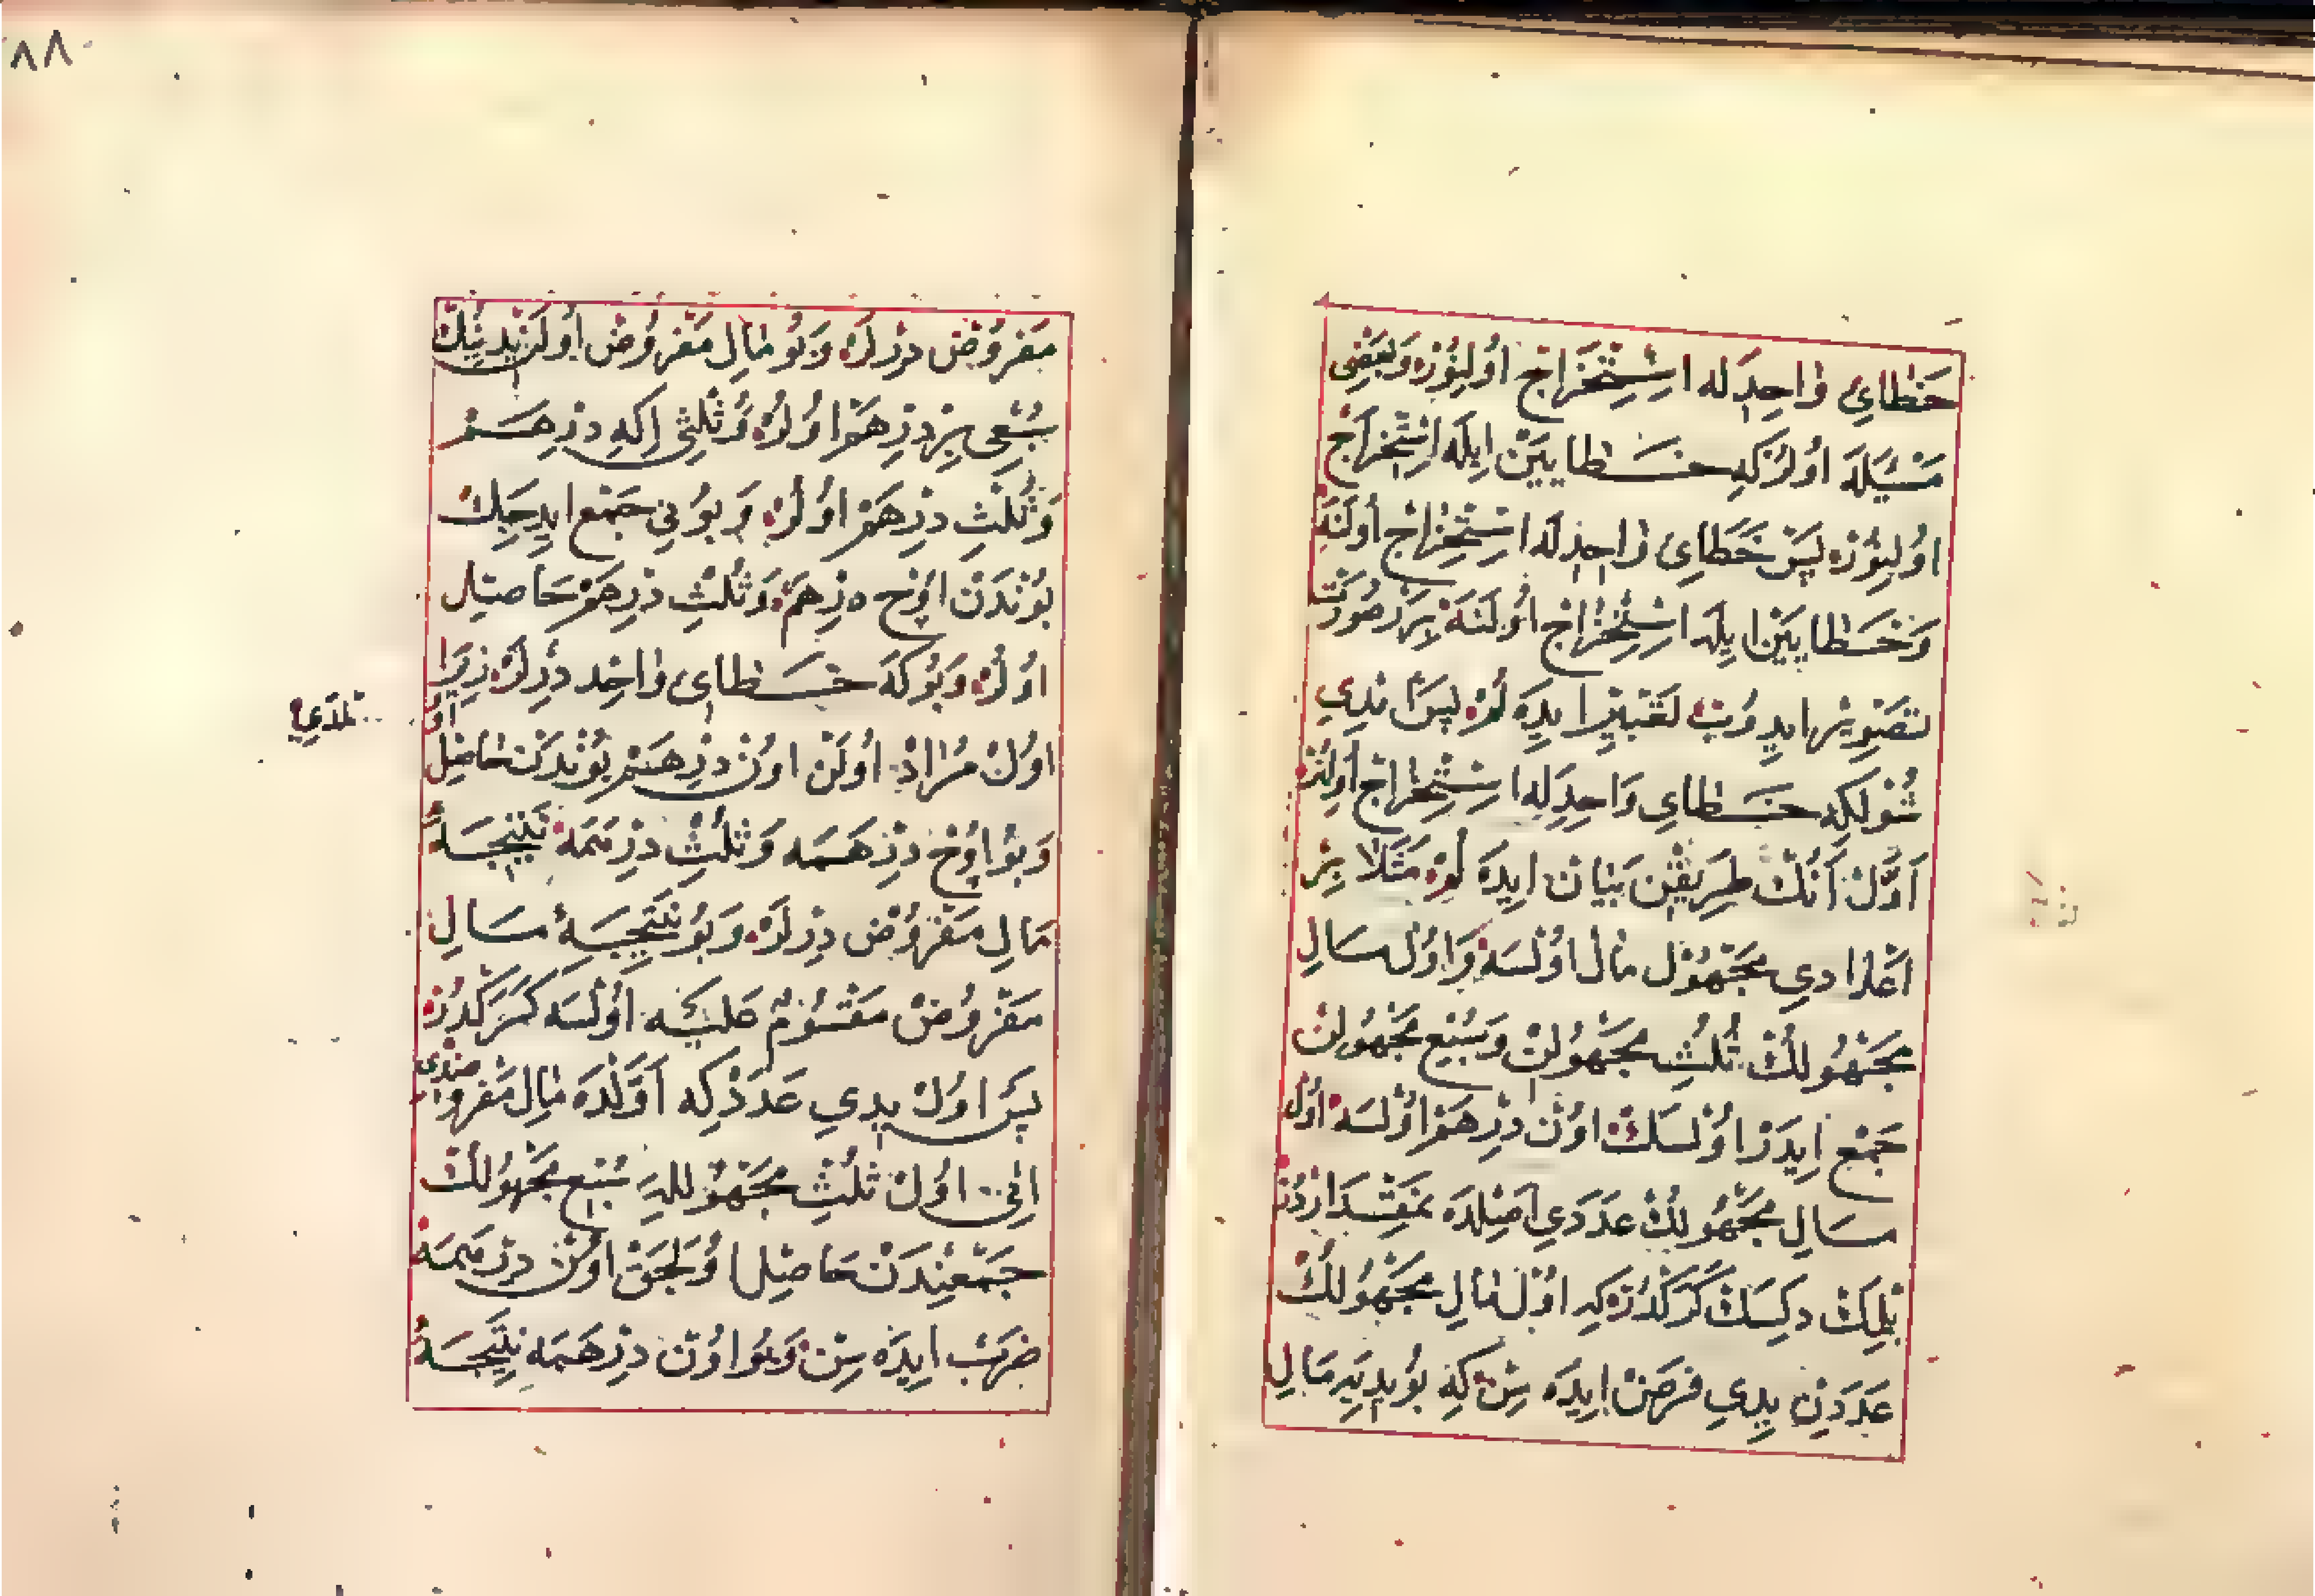 خَطَايِ وَاحِدَله اسْتِخْرَاجْ اُولِنُوُرْ وَبَعْضِى
مَسْئَلَه اُولُرْكِه خَطَايَيْنْ اِيلَه اسْتِخْرَاجْ
اوُلِنُوُرْ پَسْ خَطَاىِ وَاحِدْلَه اسْتِخْرَاجْ اُولَنَه
وَخَطَايَيْنْ اِيلَه اسْتِخْرَاجْ اُولَنَه بِرَرْ صُورَتْ
تَصْوِيرْ ايدِوُبْ تَعْبِيرْ ايدَه لُرْ پَسْ ايمْدِى
شُولكِه خَطَاىِ وَاحِدِلَه اسْتِخْرَاجْ اُولِنُرْ
اَوَّلْ اَنُكْ طَرِيقِنْ بَيَانْ ايدَه لُوُرْ مَثَلَا بِرْ
اَعْدَادِى مَجْهُولْ مَالْ اوُلْسَه وَاوُلْ مَالِ
مَجْهُولُكْ ثُلْثِ مَجْهُولِنْ وَسُبْعِ مَجْهُولِنْ
جَمْعْ ايدَرْ اوُلْسَكْ اوُنْ دِرْهَمْ اوُلْسَه اوُلْ
مَالِ مَجْهُولُكْ عَدَدِى اَصْلِدَه نَه مِقْدَارْدُرْ
بِلِكْ دِلَسَكْ كَرَكْدُرْ كِه اوُلْ مَالِ مَجْهُولُكْ
عَدَدِنْ يِدِى فَرْضْ ايدَه سِنْ كِه بُو يِدِيَه مَالِ
مَفْرُوضْ دِرْلَرْ وَبُو مَالِ مَفْرُوضْ اُولَنْ يِدِينُكْ
سُبْعِى بِرْ دِرْهَمْ اوُلُرْ وَثُلْثِى اِكِه دِرْهَمْ
وَثُلْثِ دِرْهَمْ اوُلُرْ وَبُونِى جَمْعْ ايدِجَكْ
بُونْدَنْ اوُچْ دِرْهَمْ وَثُلْثِ دِرْهَمْ حَاصِلْ
اوُلُرْ وَبُوكَه خَطَاىِ وَاحِدْ دِرْلَرْ زِيرَا
اوُلْ مُرَادْ اُولَنْ اوُنْ دِرْهَمْ بُونْدَنْ حَاصِلْ اوُ
لمَدِى
وَبُو اوُچْ دِرْهَمَه وَثُلْثِ دِرْهَمَه نَتِيجَهءِ
مَالِ مَفْرُوضْ دِرْلَرْ وَبُو نَتِيجَهءِ مَالِ
مَفْرُوضْ مَقْسُومٌ عَلَيْه اوُلْسَه كَرَكْدُرْ
پَسْ اوُلْ يِدِى عَدَدْ كِه اَوَّلْدَه مَالِ مَفْرُوضْدِى
اَنِى اوُلْ ثُلْثِ مَجْهُولْلَه سُبْعِ مَجْهُولُكْ
جَمْعِنْدَنْ حَاصِلْ اوُلَجَقْ اوُنْ دِرْهَمَه
ضَرْبْ ايدَه سِنْ وَبُو اوُنْ دِرْهَمَه نَتِيجَهءِ
٨٨